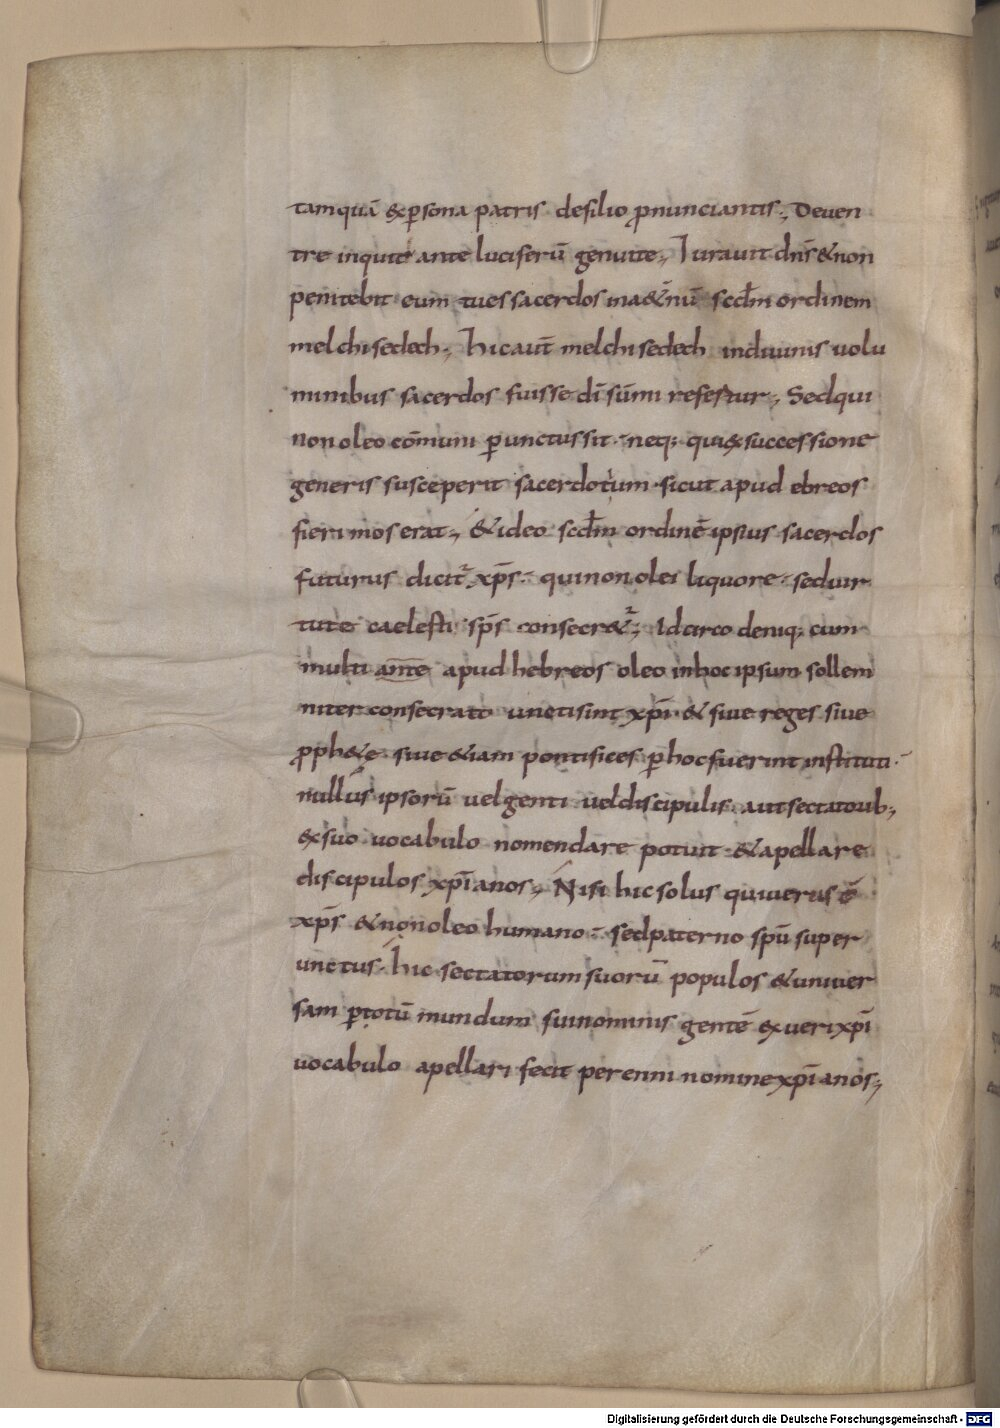 tamquā &ꝑsona patris defilio ꝓnunciantis; Deuen
tre inquit ante luciferū genuite; Iurauit dn̄s &non
penitebit eum tues sacerdos ina&nū scd̄m ordinem
melchisedech; hicaut̄ melchisedech indiuinis uolu
minibus sacerdos fuisse dī sūmi refertur; Sedqui
non oleo cōmuni ꝑunctussit· neq; qui&successione
generis susceperit sacerdotium· sicut apud ebreos
fieri mos erat; &ideo scd̄m ordinē ipsius sacerdos
futurus dicit᷑ xp̄s· quinon olei liquore· seduir
tute caelesti sp̄s consecr&᷑; Idcirco deniq; cum
multi ante apud hebreos oleo inhoc ipsum sollem
niter consecrato unctisint xp̄i· & siue reges siue
ꝓph&ę· siue &iam pontifices ꝑhocfuerint instituti·
nullus ipsorū uelgenti ueldiscipulis autsectatorib;
&suo uocabulo nomendare potuit &apellare
discipulos xp̄ianos; Nisi hicsolus quiuerus ē
xp̄s &nonoleo humano· sedpaterno spū super
unctus· hic sectatorum suorū populos &uniuer
sam ꝑtotū mundum suinominis gentē exuerixp̄i
uocabulo apellari fecit perenni nominexp̄ianos;
Digitalisierung gefördert durch die Deutsche Forschungsgemeinschaft - DFG